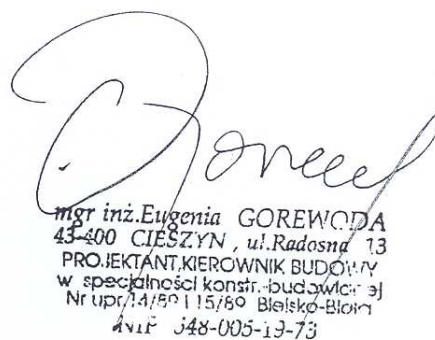 mgr inż. Eugenia GOREWODA
43-400 CIESZYN, ul. Radosna 13
PROJEKTANT, KIEROWNIK BUDOWY
w specjalności konstr.-budowlanej
Nr upr. 14/89 i 15/89 Bielsko-Biała
NIP 548-005-19-73